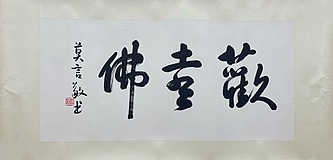 歡喜佛
莫言敬書